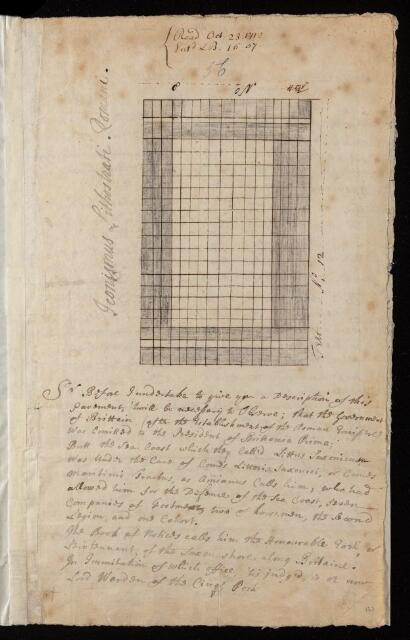 Read Oct 23. 1712
Ent'd L.B. 167
56
Iconismus Lithostrati Romani.
N. 12
Sr. Before I undertake to give you a Description of this
Pavement, 'twill be necessary to Observe; that the Government
of Brittain (after the Establishment of the Roman Empire)
was Comitted to the President of Brittania Prime;
Butt the Sea Coast which they Called Littus Saxonicum
was under the Care of Comes Littoris Saxonici, or Comes
Maritimi Tractus, as Amianus Calls him, who had
allowed him for the Defence of the Sea Coast, Seven
Companies of footmen, two of horsemen, the Second
Legion, and one Cohort.
The Book of Notices calls him the Honourable Earl or
Lieutennant, of the Saxon shore along Brittaine.
In Immitation of which office, 'tis judged, is or now
Lord Warden of the Cinq Ports